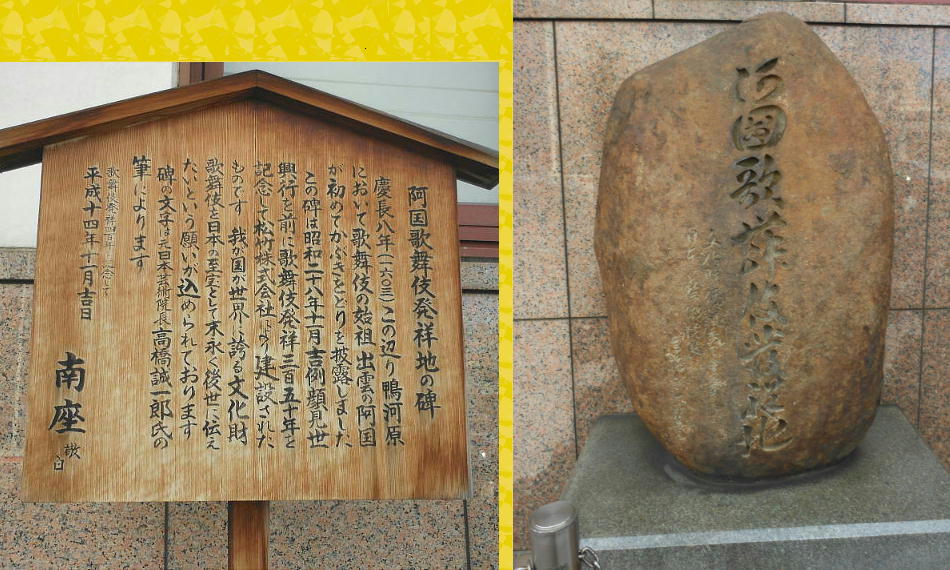 阿国歌舞伎発祥地の碑
慶長八年(一六〇三)この辺り鴨河原
において歌舞伎の始祖出雲の阿国
が初めてかぶきをどりを披露しました
この碑は昭和二十八年十一月吉例顔見世
興行を前に歌舞伎発祥三百五十年を
記念して松竹株式会社により建設された
ものです 我が国が世界に誇る文化財
歌舞伎を日本の至宝として末永く後世に伝え
たいという願いが込められております
碑の文字は元日本芸術院長高橋誠一郎氏の
筆によります
歌舞伎発祥四百年を記念して
平成十四年十一月吉日
南座
敬白
阿国歌舞伎発祥地